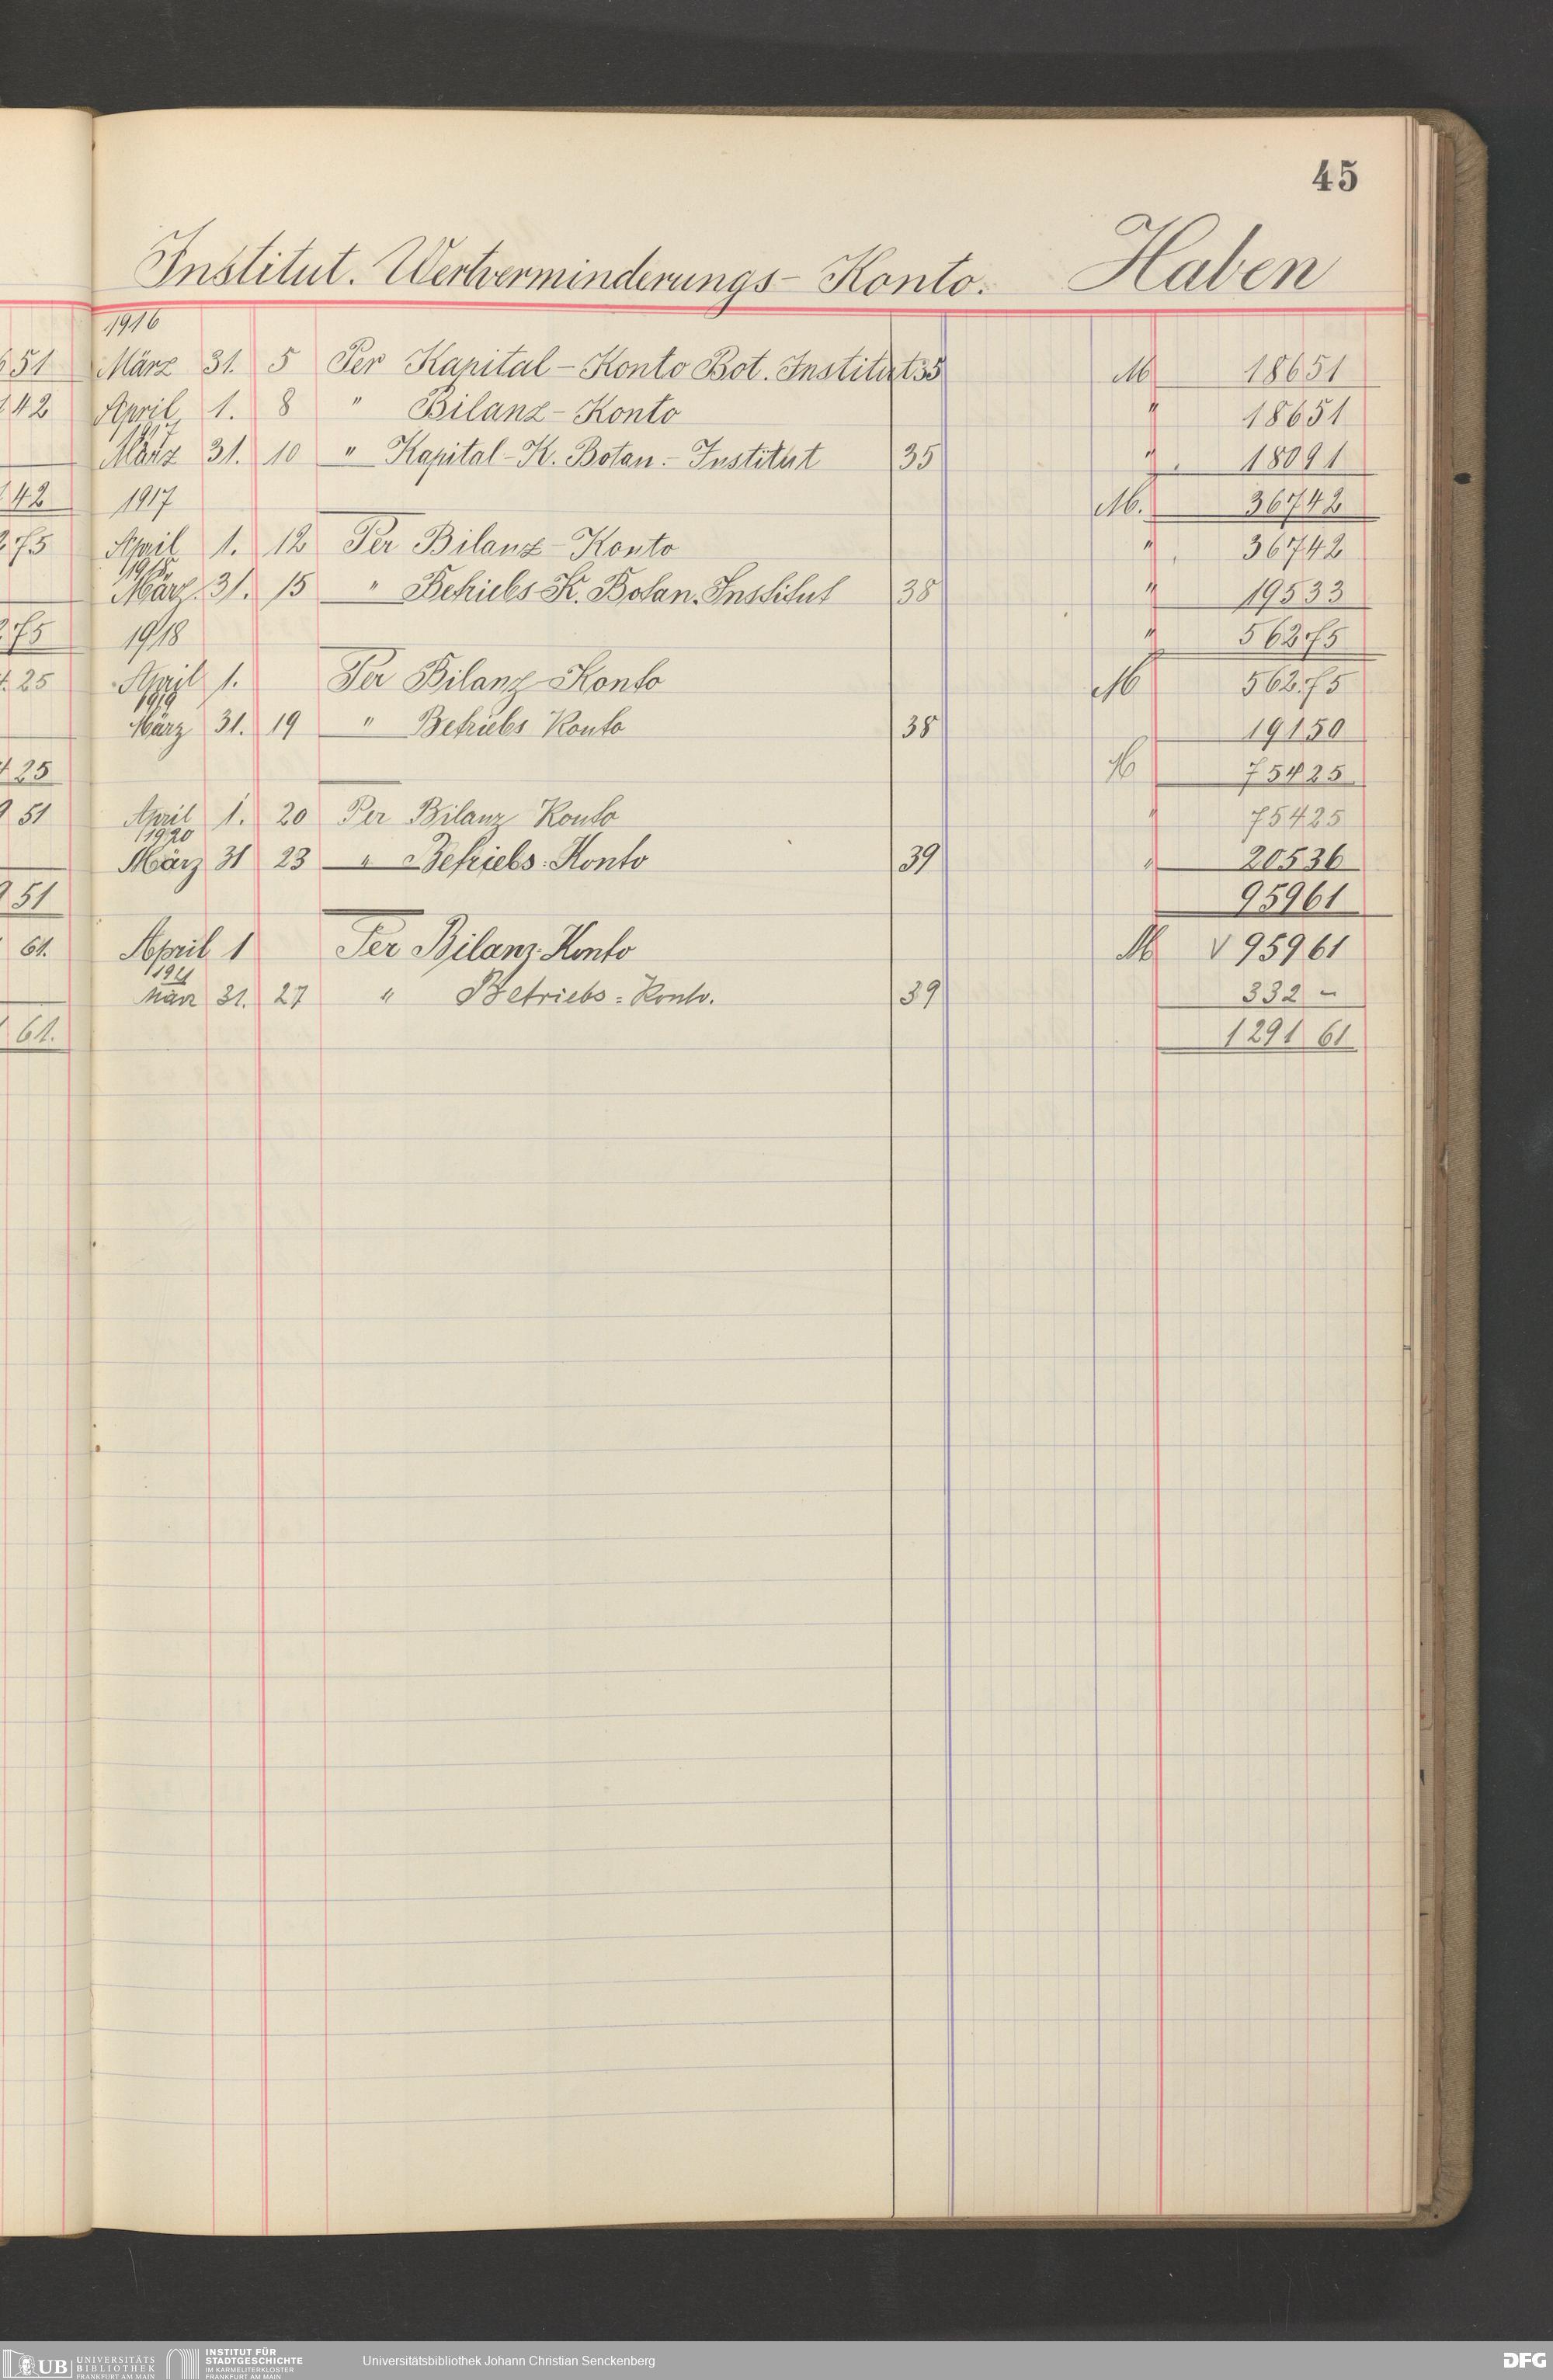 45
Institut. Wertverminderungs-Konto. Haben
1916
651 März 31. 5 Per Kapital-Konto Bot. Institut 35 M 18651
42 April 1. 8 " Bilanz-Konto " 18651
1917
März 31. 10 " Kapital-K. Botan.-Institut 35 " 18091
42 1917 M. 36742
275 April 1. 12 Per Bilanz-Konto " 36742
1918
März 31. 15 " Betriebs-K. Botan. Institut 38 " 19533
275 1918 " 56275
4.25 April 1. Per Bilanz-Konto M 56275
1919
März 31. 19 " Betriebs Konto 38 19150
425 M 75425
951 April 1. 20 Per Bilanz Konto " 75425
1920
März 31 23 " Betriebs-Konto 39 " 20536
951 95961
61. April 1 Per Bilanz-Konto M V 95961
1921
März 31. 27 " Betriebs=Konto. 39 332 –
61. 1291 61
UB UNIVERSITÄTS
BIBLIOTHEK
FRANKFURT AM MAIN
INSTITUT FÜR
STADTGESCHICHTE
IM KARMELITERKLOSTER
FRANKFURT AM MAIN
Universitätsbibliothek Johann Christian Senckenberg
DFG